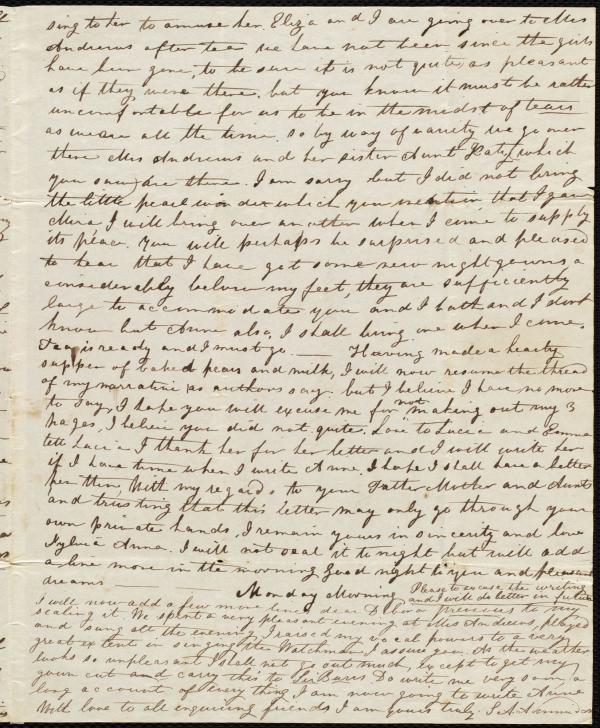 sing to her to amuse her. Eliza and I are going over to Mrs
Andrews after tea we have not been since the girls
have been gone, to be sure it is not quite as pleasant
as if they were there, but you know it must be rather
uncomfortable for us to be in the midst of tears
as we are all the time. so by way of variety we go over
there Mrs Andrews and her sister Aunt Katy (which
you saw) are there. I am sorry but I did not bring
the little pearl wonder which you mention that I gave
I will bring over another when I come to supply
its place. You will perhaps be surprised and pleased
to hear that I have got some new nightgowns a
considerably below my feet, they are sufficiently
large to accommodate you and I both and I dont
know but Anne also, I shall bring one when I come.
Tea is ready and I must go. —— Having made a hearty
supper of baked pears and milk, I will now resume the thread
of my narrative as authors say. but I believe I have no more
to say, I hope you will excuse me for not making out my 3
pages, I believe you did not quite. Love to Lucia and Emma
tell Lucia I thank her for her letter and I will write her
if I have time when I write Anne. I hope I shall have a letter
per then, With my regards to your Father Mother and Aunts
and trusting that this letter may only go through your
own private hands, I remain yours in sincerity and love
Sylvia Anna. I will not seal it to night but will add
a line more in the morning good night to you and pleasant
dreams ——
Monday Morning Please to excuse the writing
and I will do better in future
I will now add a few more lines dear Debora previous to my
sealing it. We spent a very pleasant evening at Mrs Andrews, played
and sung all the evening, I raised my vocal powers to a very
great extent in singing the Watchman I assure you. As the weather
looks so unpleasant I shall not go out much, Except to get my
gown cut and carry this to Do write me very soon a
long account of everything I am now going to write Anne
With love to all enquiring friends I am yours truly. S.A. Ammidon